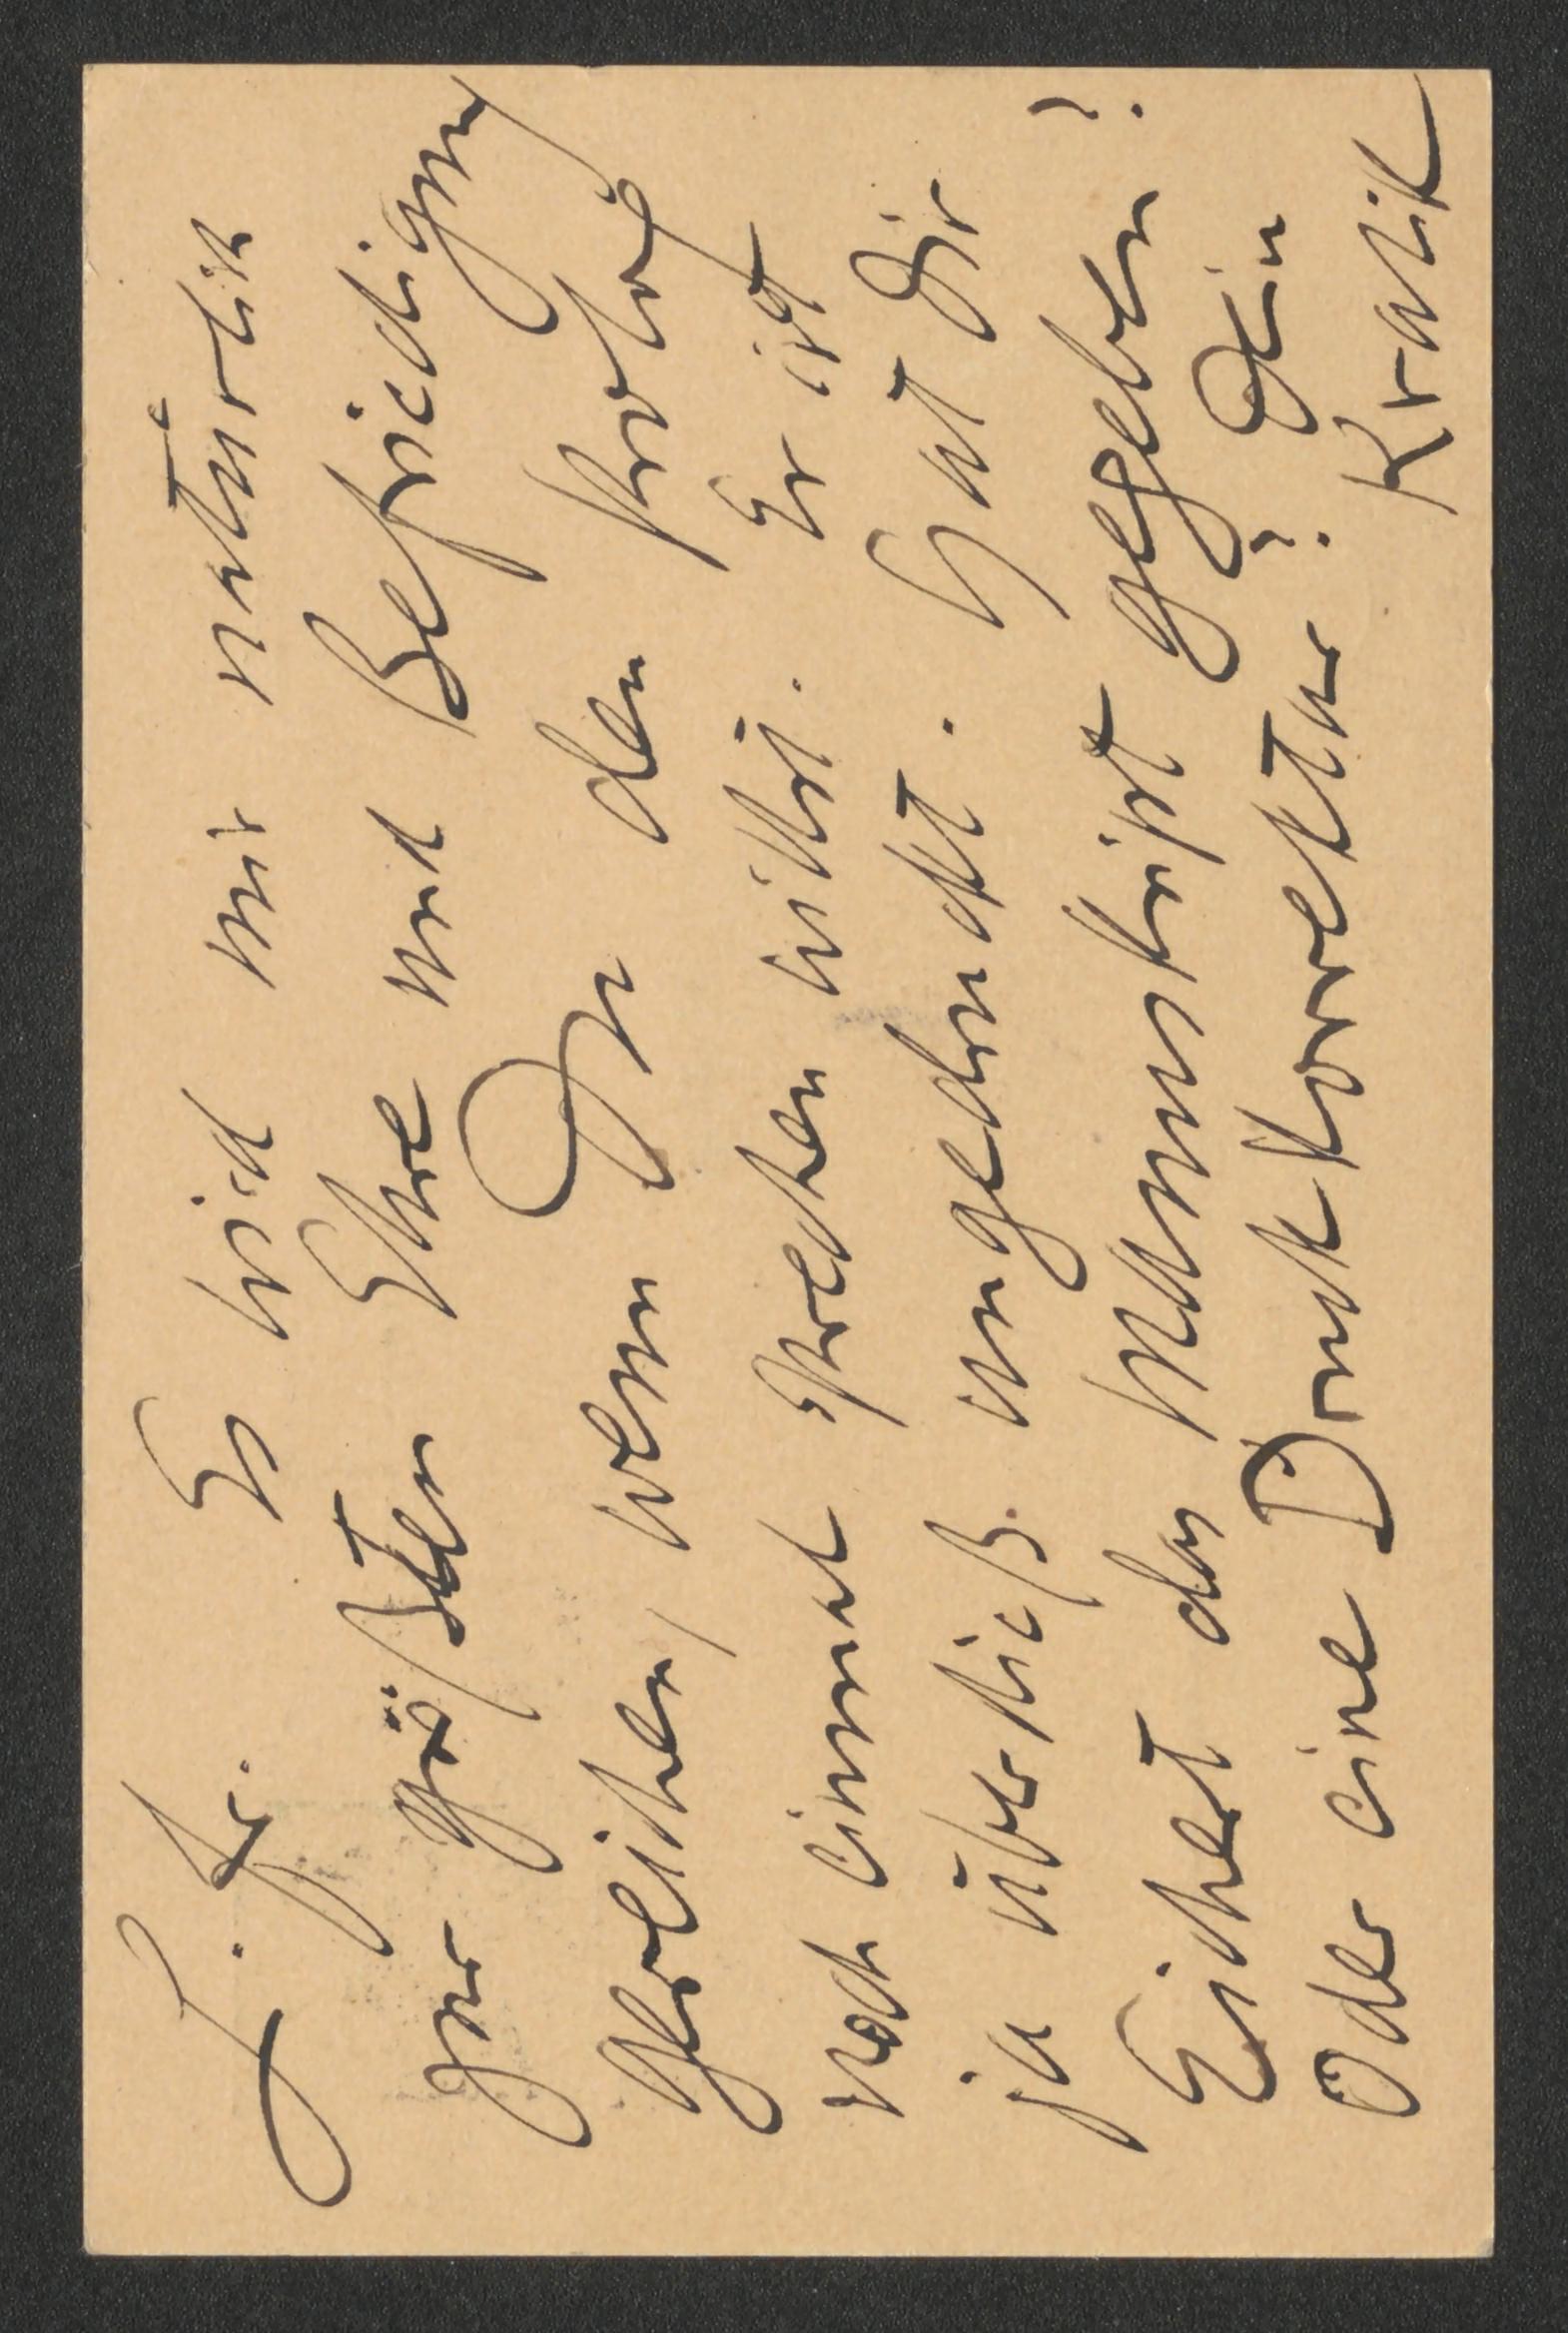 L. Fr. Es wird mir natürlich
zur größten Ehre und Befriedigung
gereichen, wenn Du den Prolog
noch einmal sprechen willst. Er ist
ja überdieß ungedruckt. Hat Dir
Eichert das Manuskript gegeben?
Oder eine Druckkorrektur? Dein
Kralik